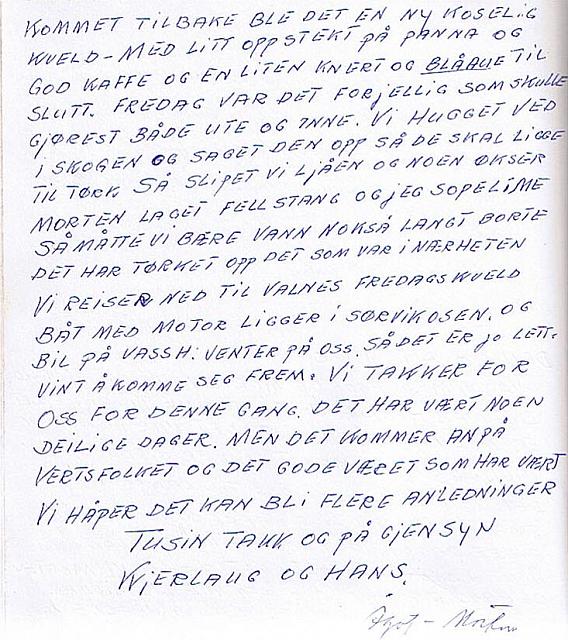 KOMMET TILBAKE BLE DET EN NY KOSELIG
KVELD - MED LITT OPPSTEKT PÅ PANNA OG
GOD KAFFE OG EN LITEN KNERT OG BLÅAUE TIL
SLUTT. FREDAG VAR DET FORJELLIG SOM SKULLE
GJØREST BÅDE UTE OG INNE. VI HUGGET VED
I SKOGEN OG SAGET DEN OPP SÅ DE SKAL LIGGE
TIL TØRK SÅ SLIPET VI LJÅEN OG NOEN ØKSER
MORTEN LAGET FELLSTANG OG JEG SOPELIME
SÅ MÅTTE VI BÆRE VANN NOKSÅ LANGT BORTE
DET HAR TØRKET OPP DET SOM VAR I NÆRHETEN
VI REISER NED TIL VALNES FREDAGSKVELD
BÅT MED MOTOR LIGGER I SØRVIKOSEN. OG
BIL PÅ VASSH: VENTER PÅ OSS. SÅ DET ER JO LETT-
VINT Å KOMME SEG FREM. VI TAKKER FOR
OSS FOR DENNE GANG. DET HAR VÆRT NOEN
DEILIGE DAGER. MEN DET KOMMER AN PÅ
VERTSFOLKET OG DET GODE VÆRET SOM HAR VÆRT
VI HÅPER DET KAN BLI FLERE ANLEDNINGER
TUSIN TAKK OG PÅ GJENSYN
KJERLAUG OG HANS.
Morten